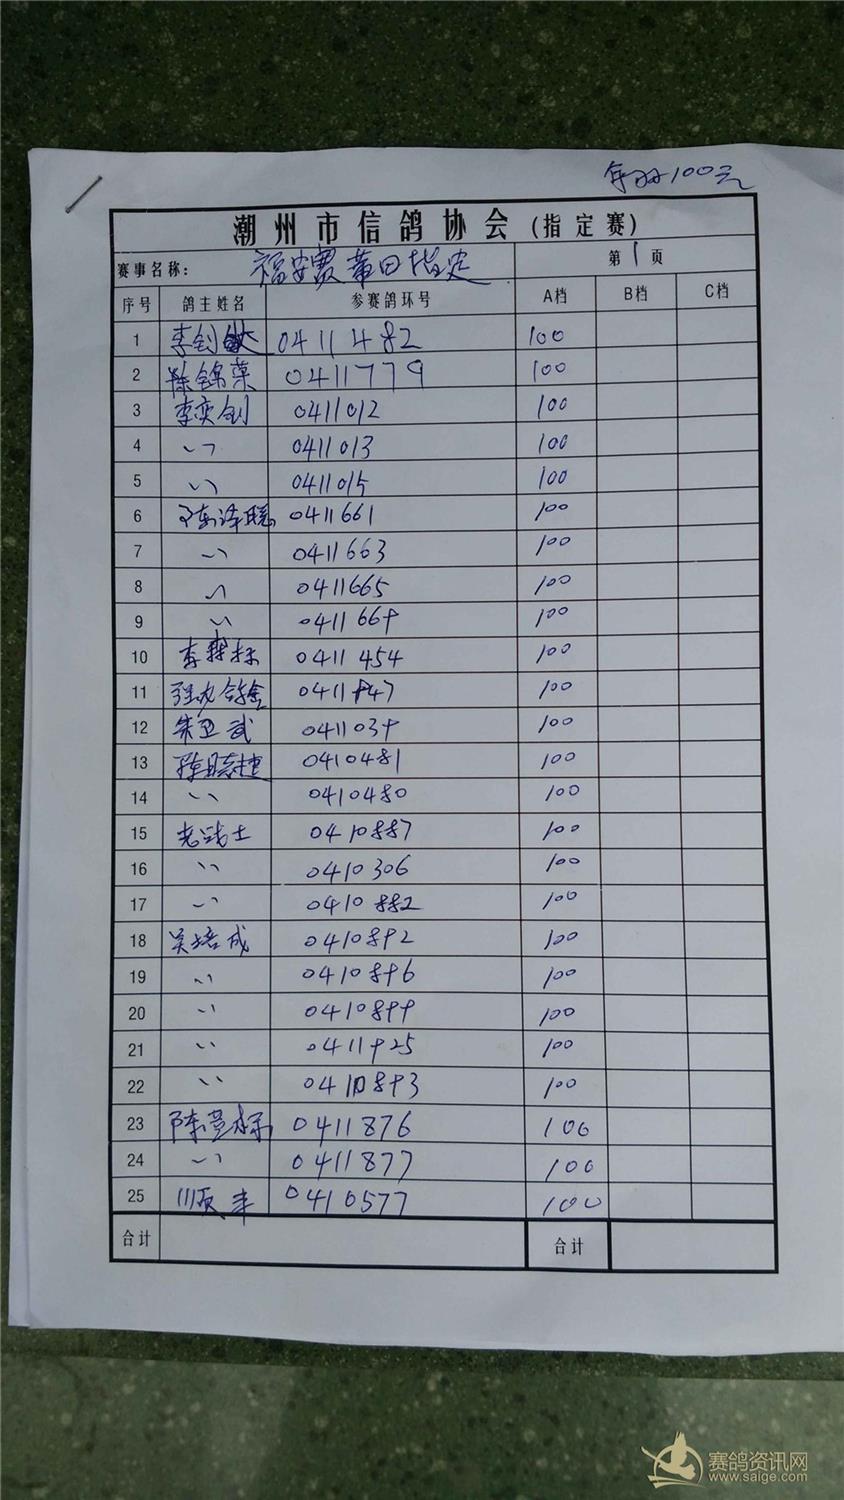 每羽100元
潮州市信鸽协会(指定赛)
赛事名称: 福安赛莆田指定 第1页
序号 鸽主姓名 参赛鸽环号 A档 B档 C档
1 李钊 0411482 100
2 陈锦荣 0411779 100
3 李奕钊 0411012 100
4 〃 0411013 100
5 〃 0411015 100
6 陈泽聪 0411661 100
7 〃 0411663 100
8 〃 0411665 100
9 〃 0411669 100
10 李 标 0411454 100
11 强友鸽舍 0411947 100
12 朱卫武 0411039 100
13 陈晓捷 0410481 100
14 〃 0410480 100
15 老战士 0410887 100
16 〃 0410306 100
17 〃 0410882 100
18 吴培成 0410892 100
19 〃 0410896 100
20 〃 0410899 100
21 〃 0411925 100
22 〃 0410893 100
23 陈 0411876 100
24 〃 0411877 100
25 顺丰 0410577 100
合计 合计
赛鸽资讯网
www.saige.com